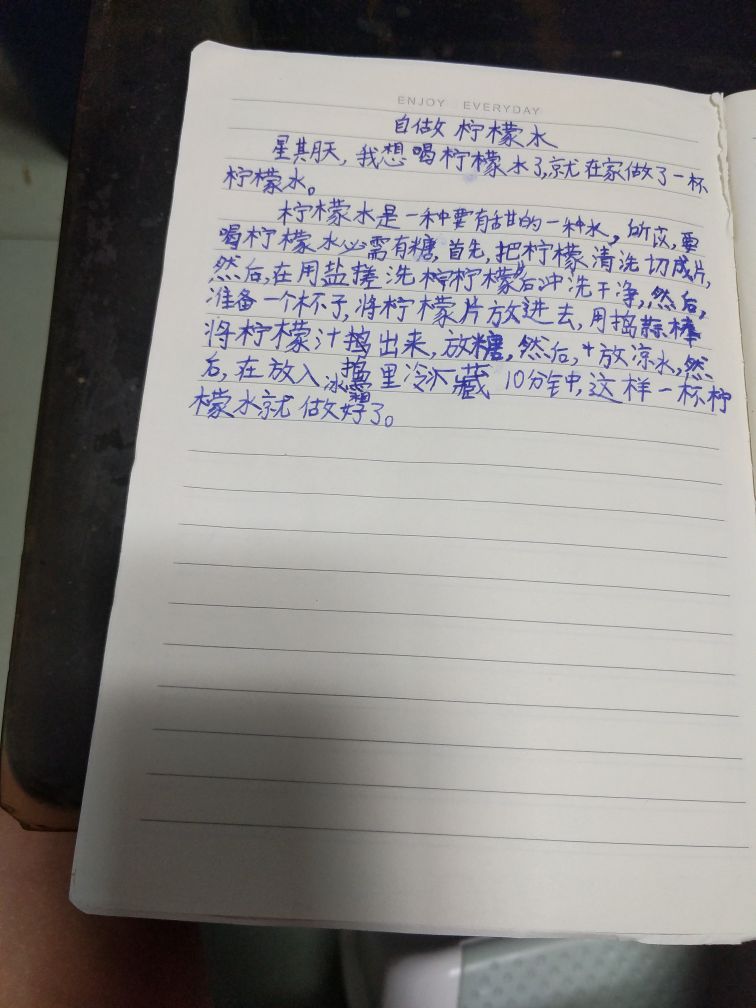 ENJOY EVERYDAY
自做柠檬水
星其月天,我想喝柠檬水了,就在家做了一杯
柠檬水。
柠檬水是一种要有甜的一种水,所以,要
喝柠檬水必需有糖,首先,把柠檬清洗切成片,
然后,在用盐搓洗柠檬后冲洗干净,然后,
准备一个杯子,将柠檬片放进去,用捣蒜棒
将柠檬汁捣出来,放糖,然后,放凉水,然
后,在放入冰箱里冷藏10分钟,这样一杯柠
檬水就做好了。